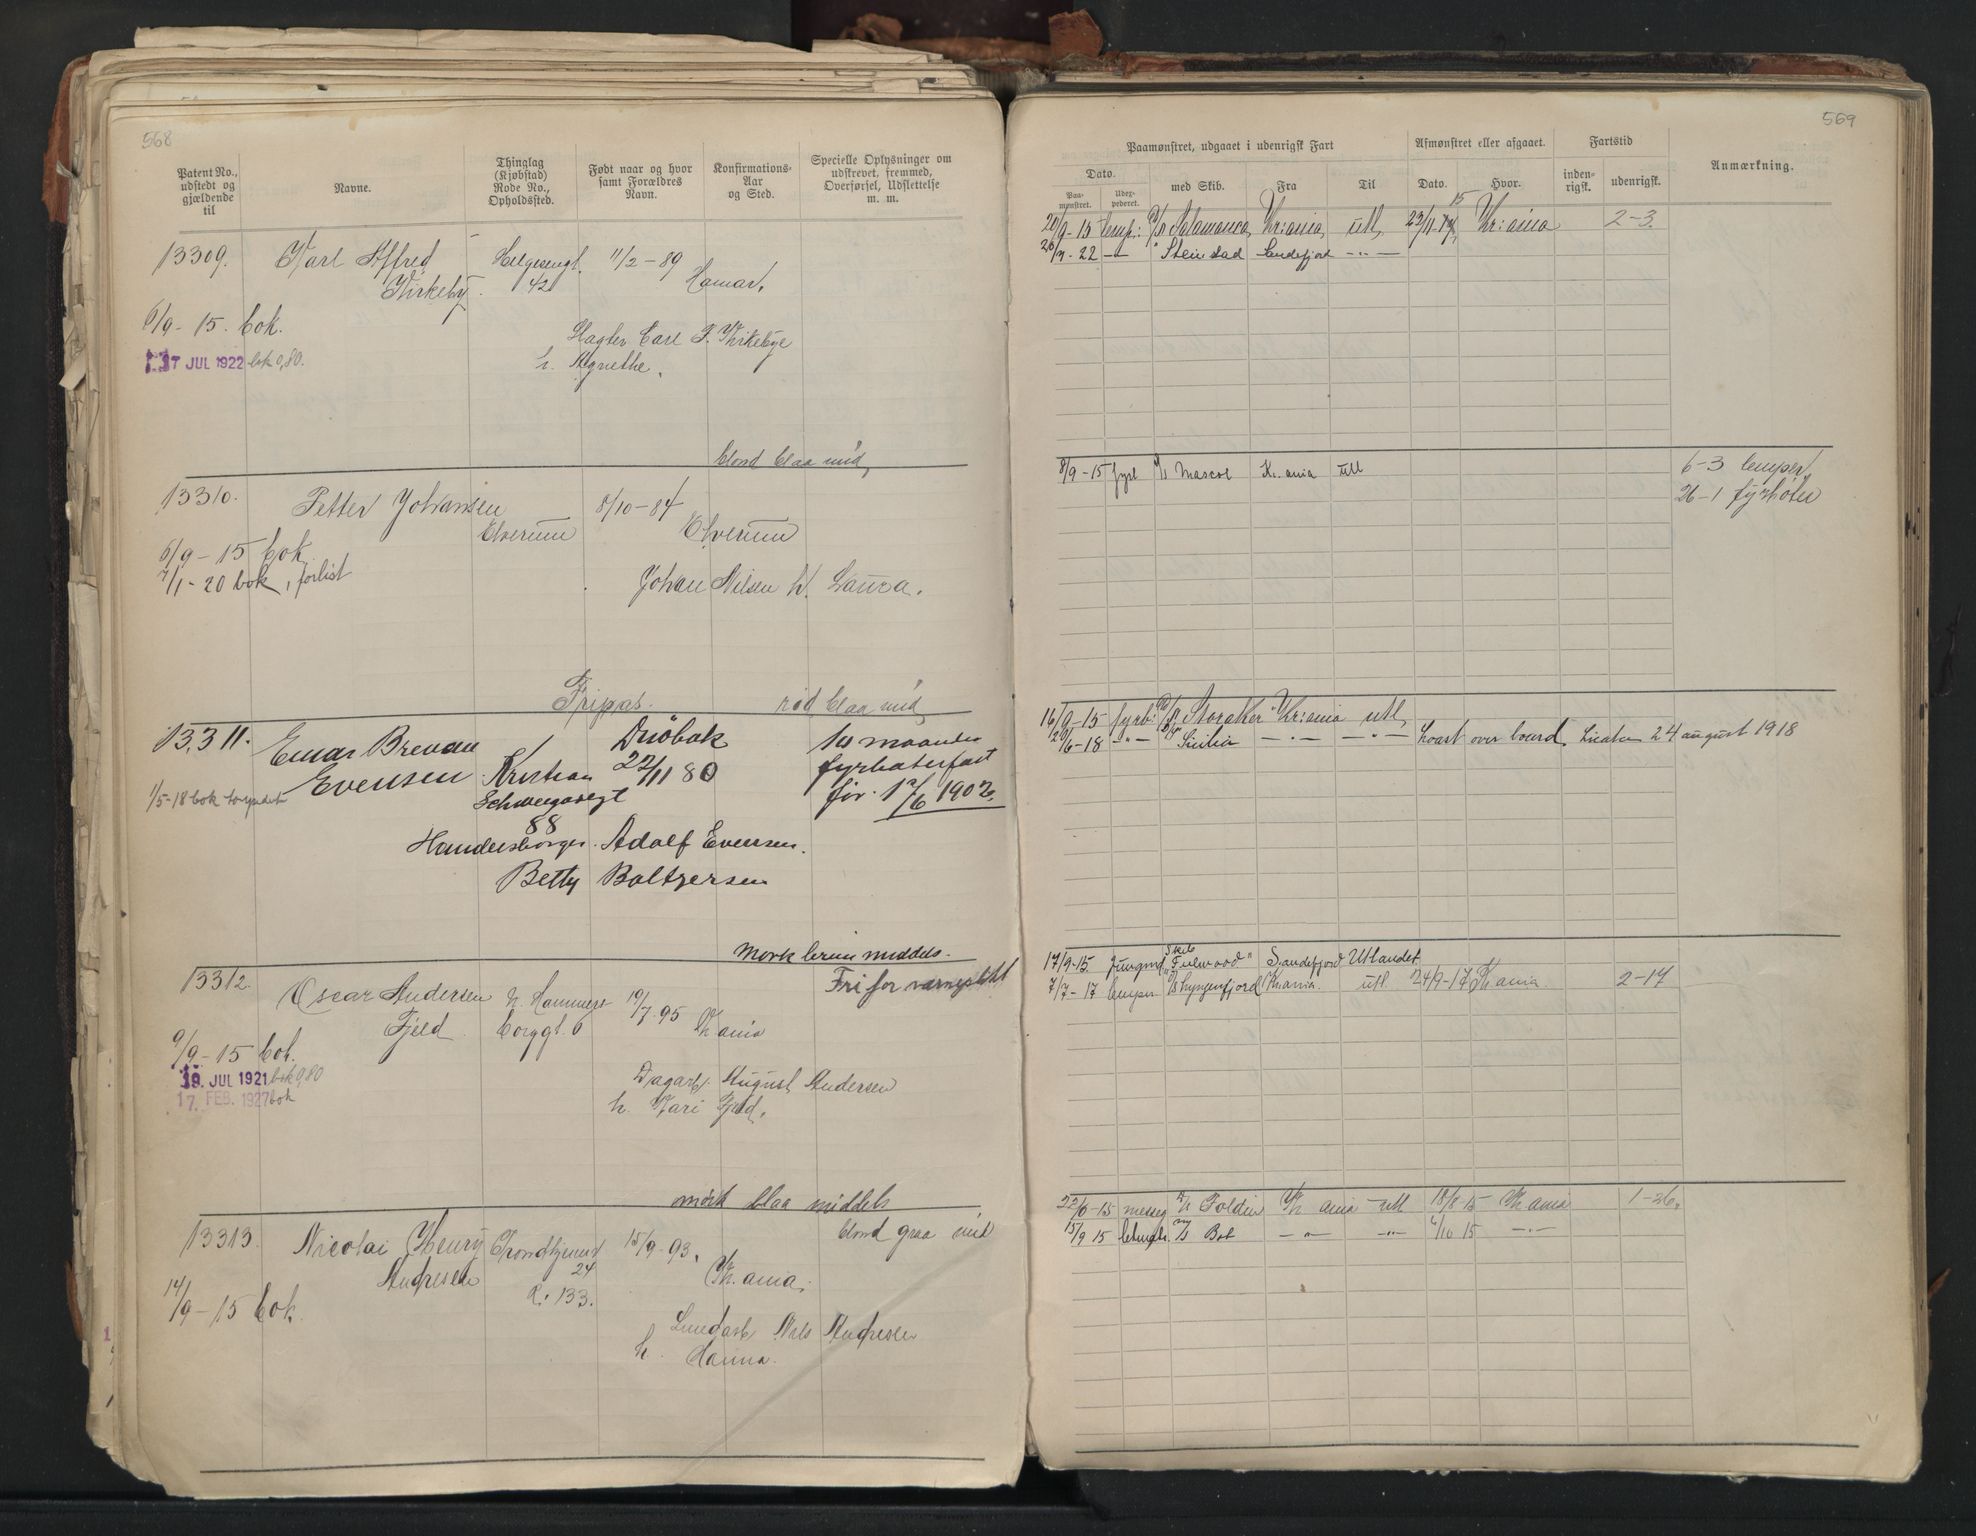 568
Patent No., udstedt og gjældende til
Navne.
Thinglag (Kjøbstad) Rode No., Opholdssted.
Født naar og hvor samt Forældres Navn.
Konfirmations-Aar og Sted.
Specielle Oplysninger om udskrevet, fremmed, Overførsel, Udslettelse m. m.
13309. Karl Alfred Helgesengt. 11/2-89
Kirkeby. 42 Hamar,
6/9-15. bok.
Carl F. Kirkebye
7 JUL 1922 bok 0,80. h. Agnethe,
blond blaa mid,
13310. Petter Johansen 8/10-84
Elverum Elverum
6/9-15 bok
7/1-20 bok, forlist Johan Nilsen h. Laura.
Fripas. rød blaa mid,
13311. Einar Brevan Drøbak 10 maaneder
Evensen Kristian 22/11 80 fyrbøterfart
1/5-18 bok Schweigaasgt før 1902.
88
Adolf Evensen.
Betty Baltzersen
Mørk brun middels.
13312. Oscar Andersen N. Hammers 19/7.95 Fri for værneplikt
Fjeld. borggt. 6 Kr ania
9/9-15 bok.
19. JUL 1921 bok 0,80 Dagarb. August Andersen
17. FEB. 1927 bok h. Kari Fjeld.
mørk blaa middels
13313. Nicolai Henry Trondhjemsv 15/9-93. blond graa mid
Andresen 24 Kr. ania.
14/9-15 bok. R. 133.
Nils Andresen
h. Hanna.
569
Paamønstret, udgaaet i udenrigsk Fart
Afmønstret eller afgaaet.
Fartstid
Anmærkning.
Dato.
Paamønstret. Uderpederet.
med Skib. Fra Til Dato. Hvor. indenrigsk. udenrigsk.
20/9-15 Lemp: D/S Salamanca Kr:ania utl, 23/11-15 Kr:ania 2-3.
22 -"- " Steinstad Sandefjord -"-
8/9-15 fyrb D/S Mascot Kr. ania utl 6-3 lemper,
26-1 fyrbøter
16/9-15 fyrb: D/S Storaker Kr:ania utl,
20/6-18 -"- D/S Sicilia -"- -"- kvast over bord. 24 august 1918
17/9-15. Jungmd Skib "Fulwood" Sandefjord Utlandet
7/7-17 lemper D/S Lyngenfjord Kr.ania. utl. 24/9-17 Kr ania. 2-17
22/6-15 messeg D/S Foldin Kr ania utl 18/8 15 Kr ania 1-26,
15/9 15 D/S Bob -"- -"- 4/10 15 -"-